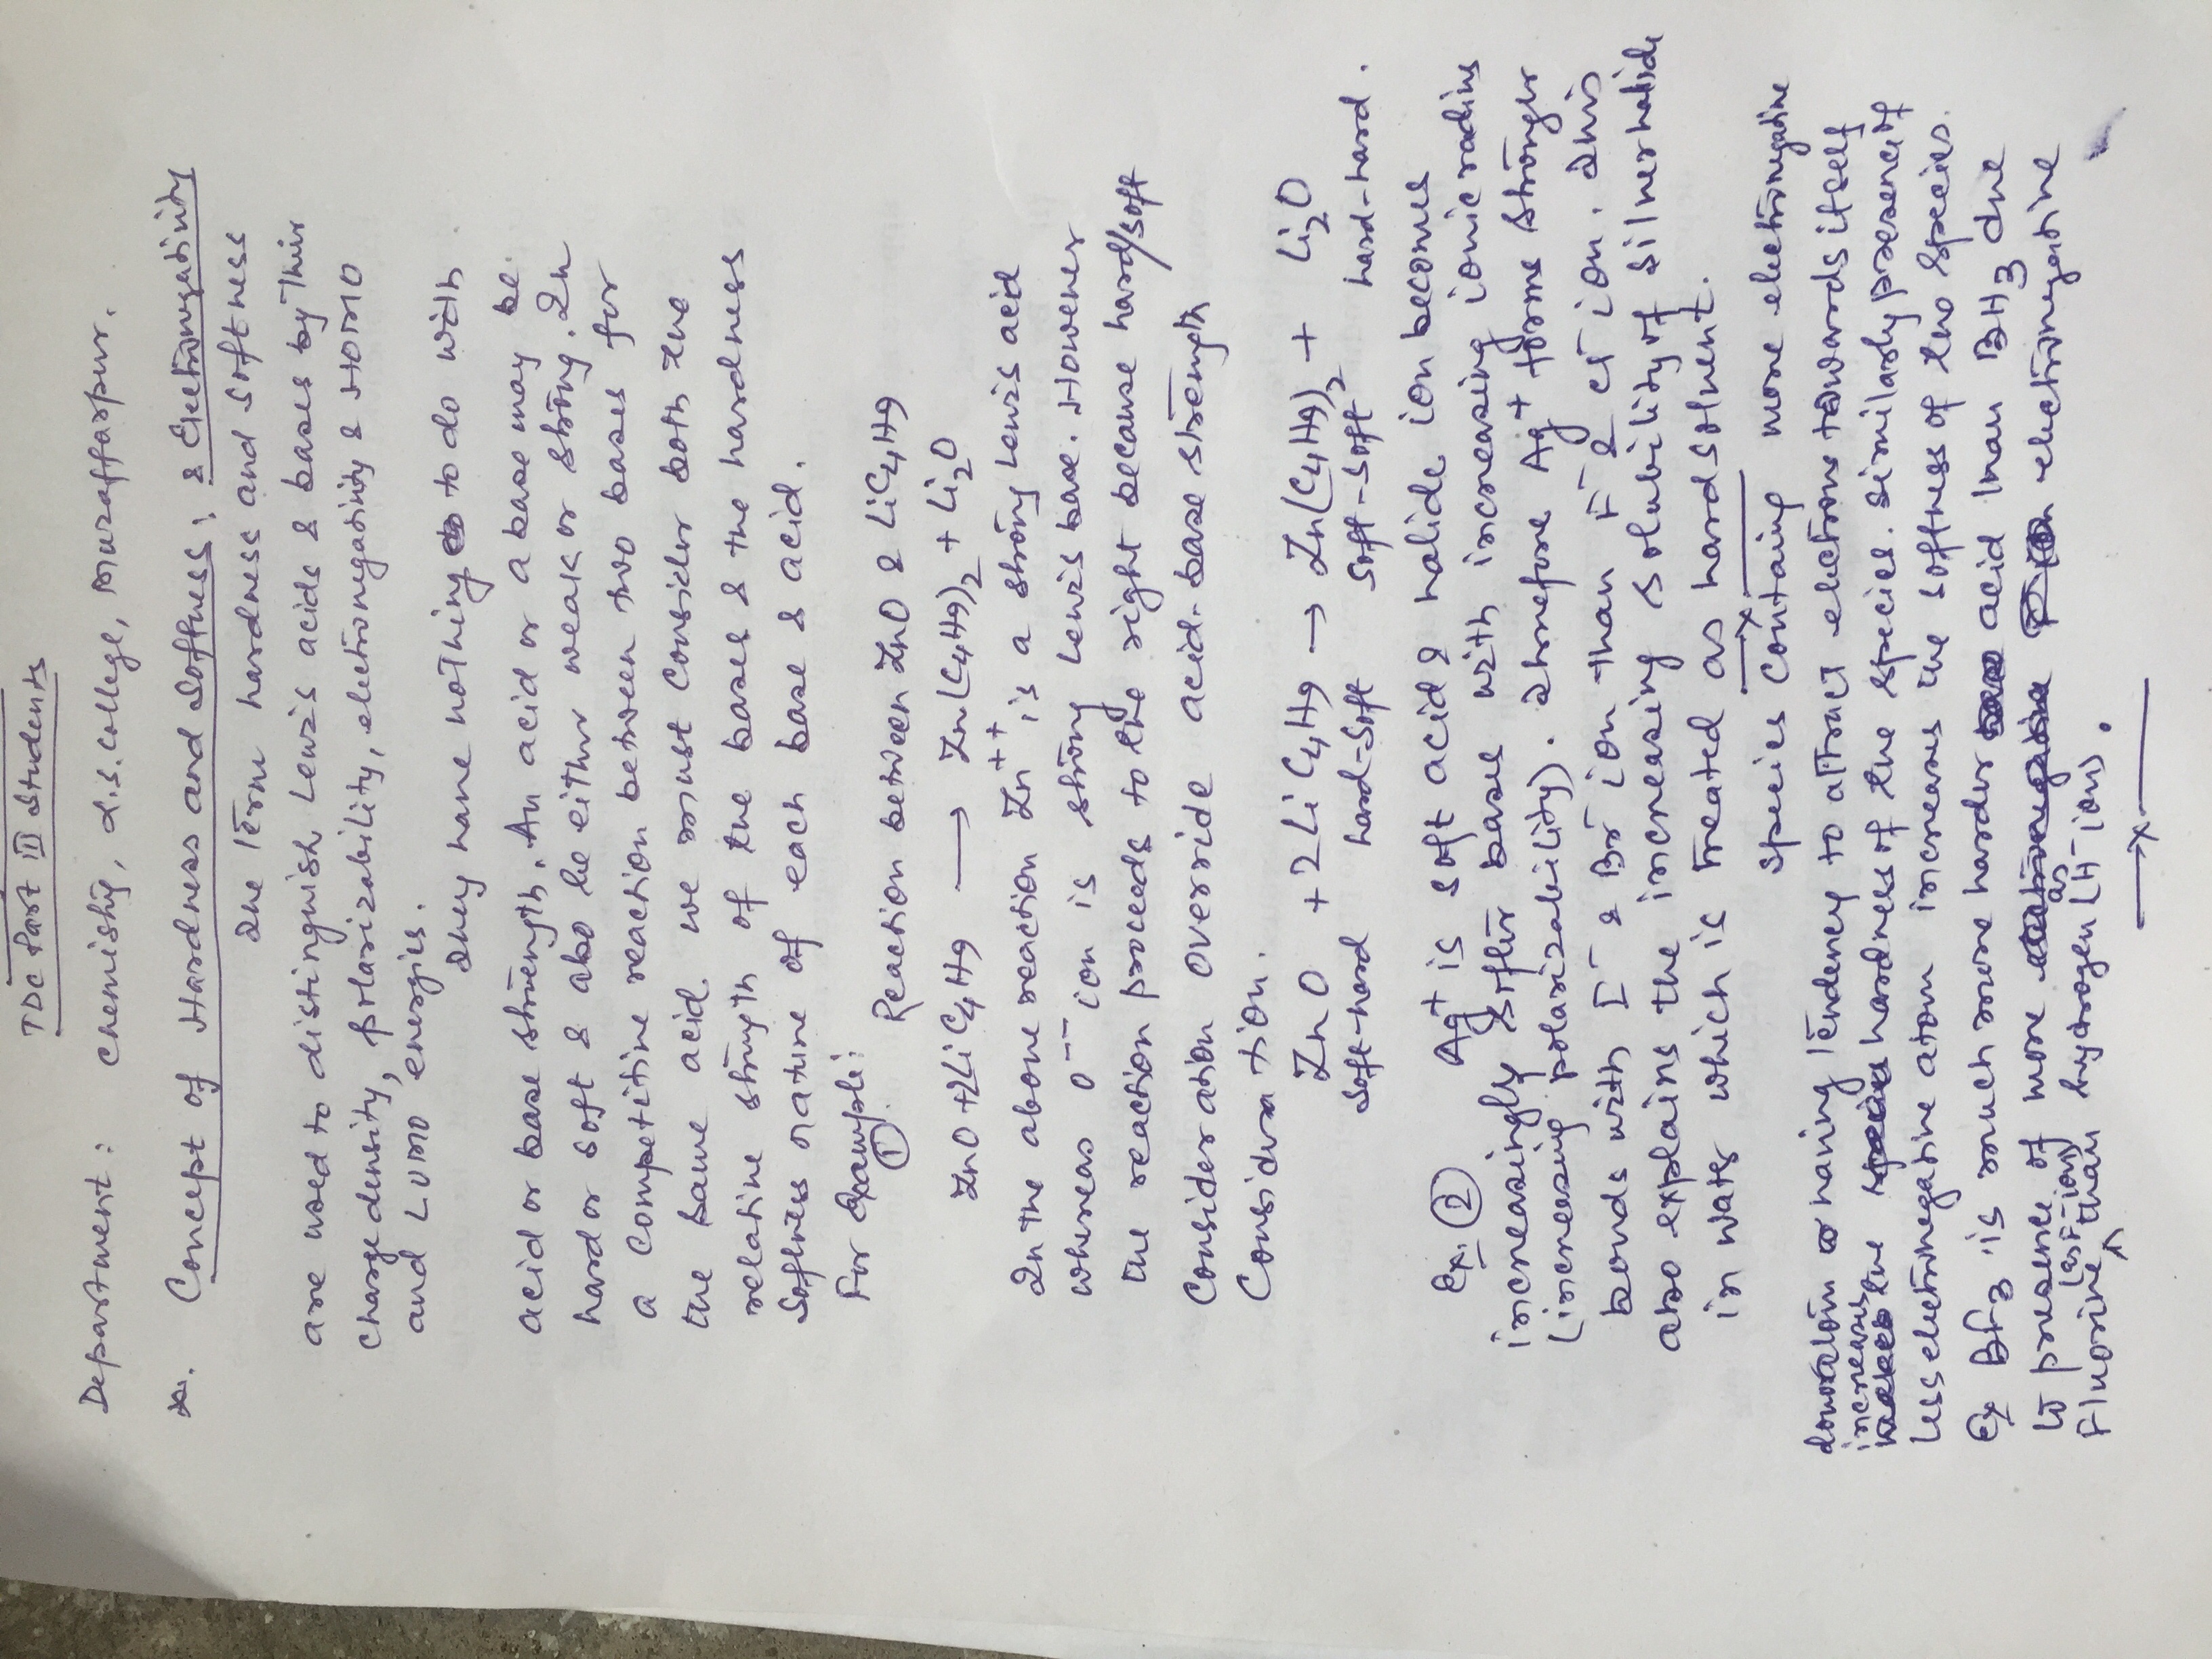 TDC Part III Students
Department: Chemistry, L.S. College, Muzaffarpur.
*. Concept of Hardness and Softness; & Electronegativity
The term hardness and softness
are used to distinguish Lewis acids & bases by their
charge density, polarizability, electronegativity & HOMO
and LUMO energies.
They have nothing to do with
acid or base strength. An acid or a base may be
hard or soft & also be either weak or strong. In
a competitive reaction between two bases for
the same acid we must consider both the
relative strength of the bases & the hardness
softness nature of each base & acid.
For Example:
① Reaction between ZnO & LiC4H9
ZnO + 2LiC4H9 → Zn(C4H9)2 + Li2O
In the above reaction Zn++ is a strong Lewis acid
whereas O-- ion is strong Lewis base. However
the reaction proceeds to the right because hard/soft
consideration override acid-base strength
consideration.
ZnO + 2LiC4H9 → Zn(C4H9)2 + Li2O
soft-hard hard-soft soft-soft hard-hard.
Ex. ② Ag+ is soft acid & halide ion becomes
increasingly softer bases with increasing ionic radius
(increasing polarizability). Therefore Ag+ forms stronger
bonds with I- & Br- ion than F- & Cl- ion. This
also explains the increasing solubility of silver halide
in water which is treated as hard solvent.
→x
Species containing more electronegative
donor atom having tendency to attract electrons towards itself
increases the hardness of the species. Similarly presence of
less electronegative atom increases the softness of the species.
Ex BF3 is much more harder acid than BH3 due
to presence of more electronegative
Fluorine (as F- ion) than hydrogen (as H- ion).
→x